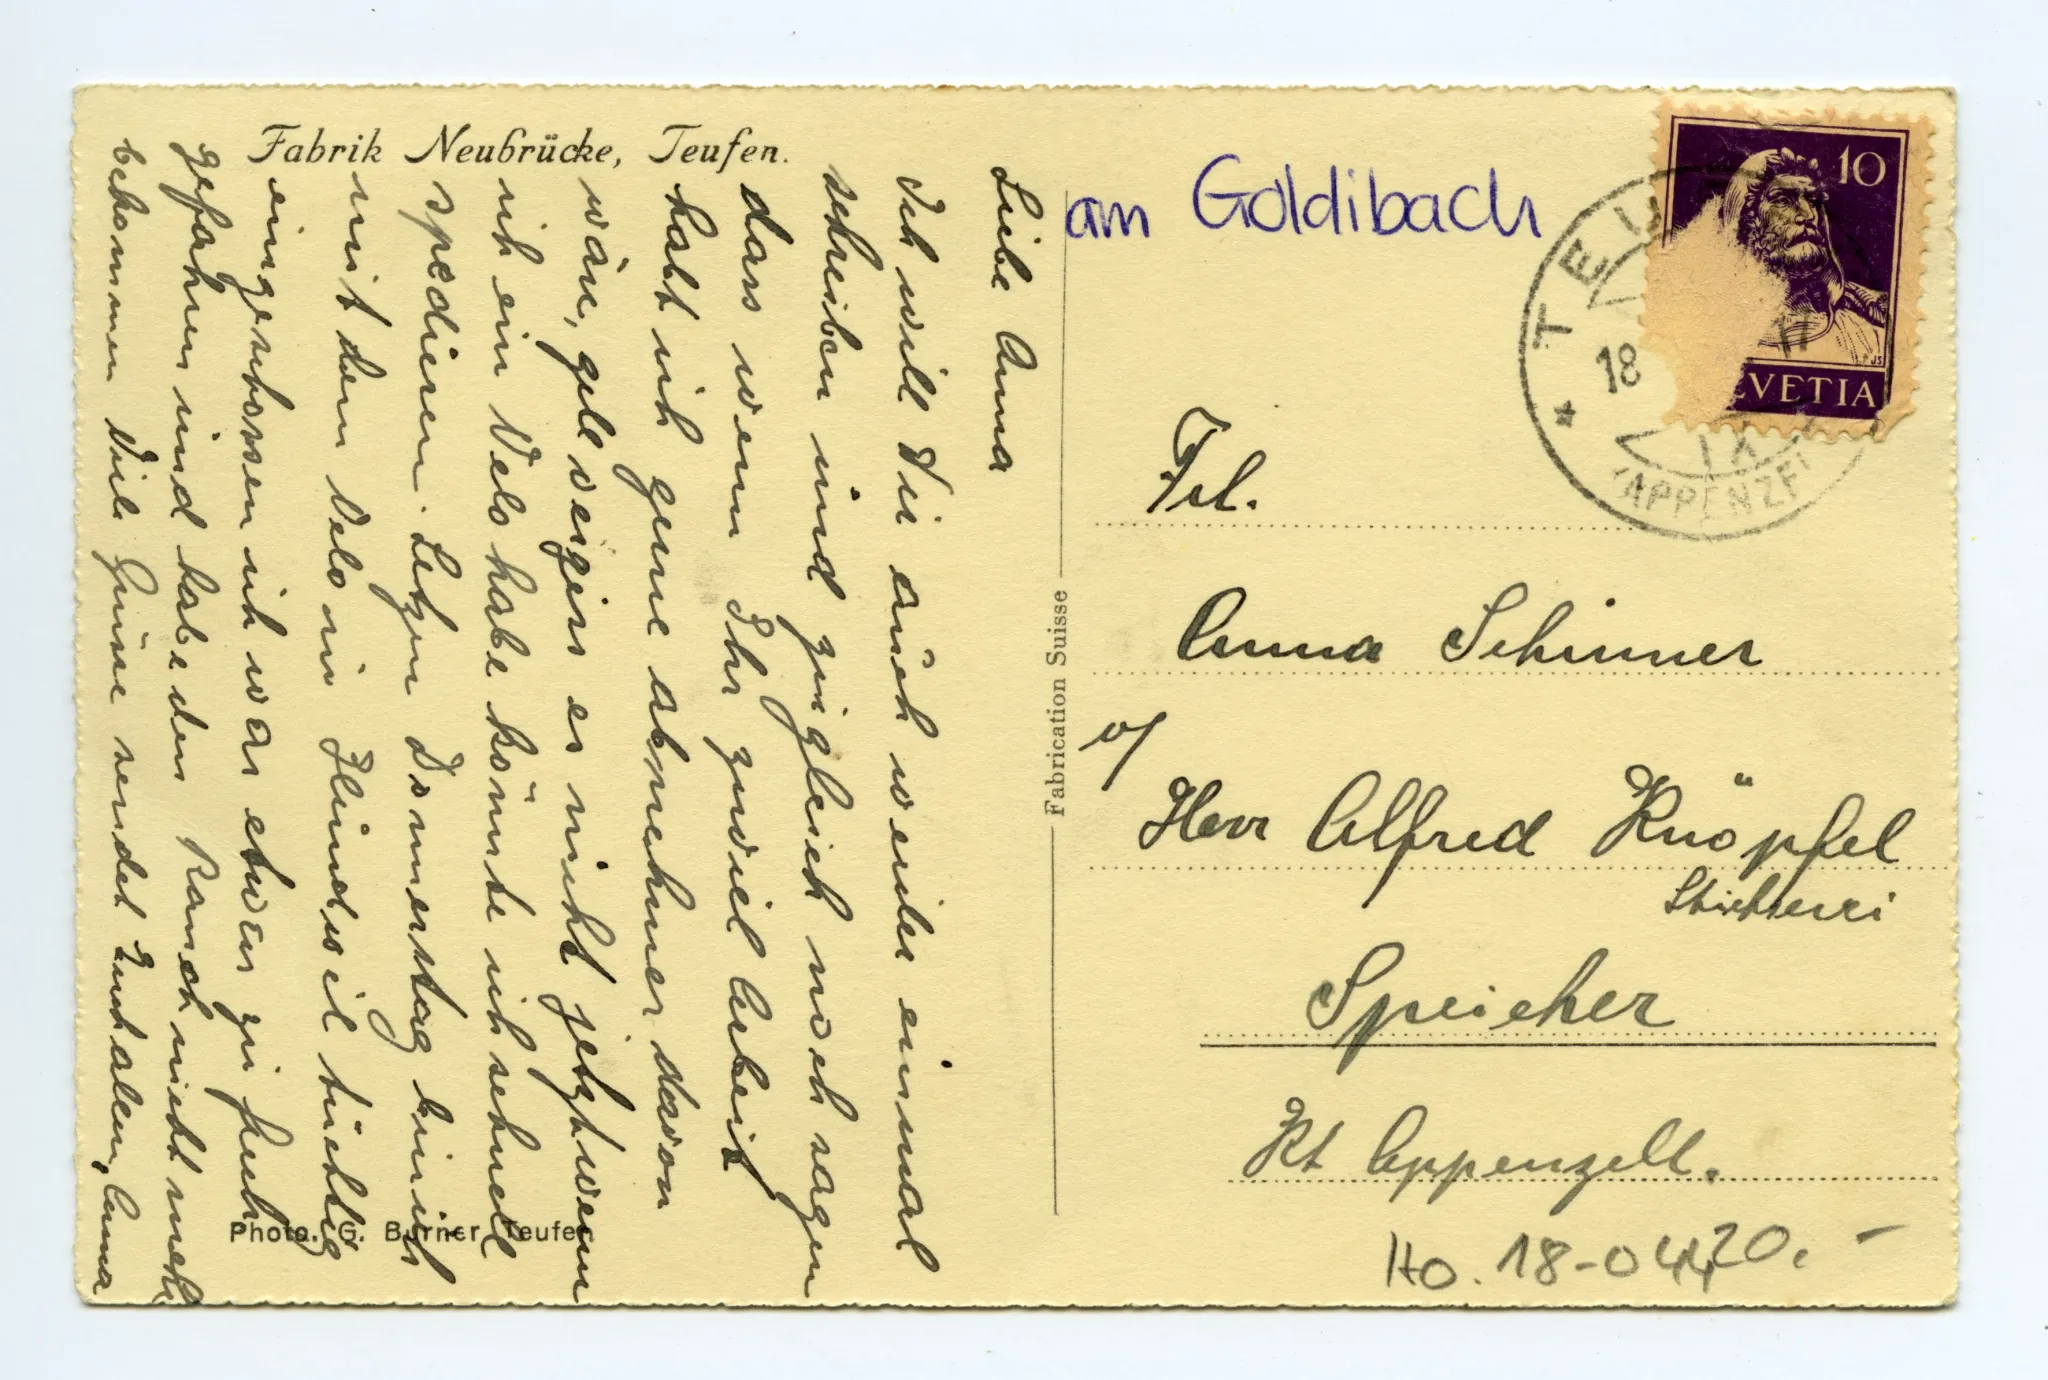 Fabrik Neubrücke, Teufen.
Liebe Anna
Ich will Dir auch wieder einmal
schreiben und zugleich noch sagen
dass wenn Ihr zuviel Arbeit
habt ich gerne abnehmer davon
wäre, gel weigers es nicht jetzt wenn
ich ein Velo habe könnte ich schnell
spedieren. Letzen Donnerstag bin ich
mit dem Velo in Hundwil tüchtig
eingeschossen ich war etwas zu früh
gefahren und habe den Ranch nicht mehr
bekommen Viele Grüsse sendet Euch allen, Anna
Photo. G. Burner Teufen
Fabrication Suisse
am Goldibach
10
HELVETIA
TEUFEN
18
(APPENZELL)
Frl.
Anna Schirmer
o/
Herr Alfred Knöpfel
Stickerei
Speicher
Kt Appenzell.
Ho. 18-04420.-